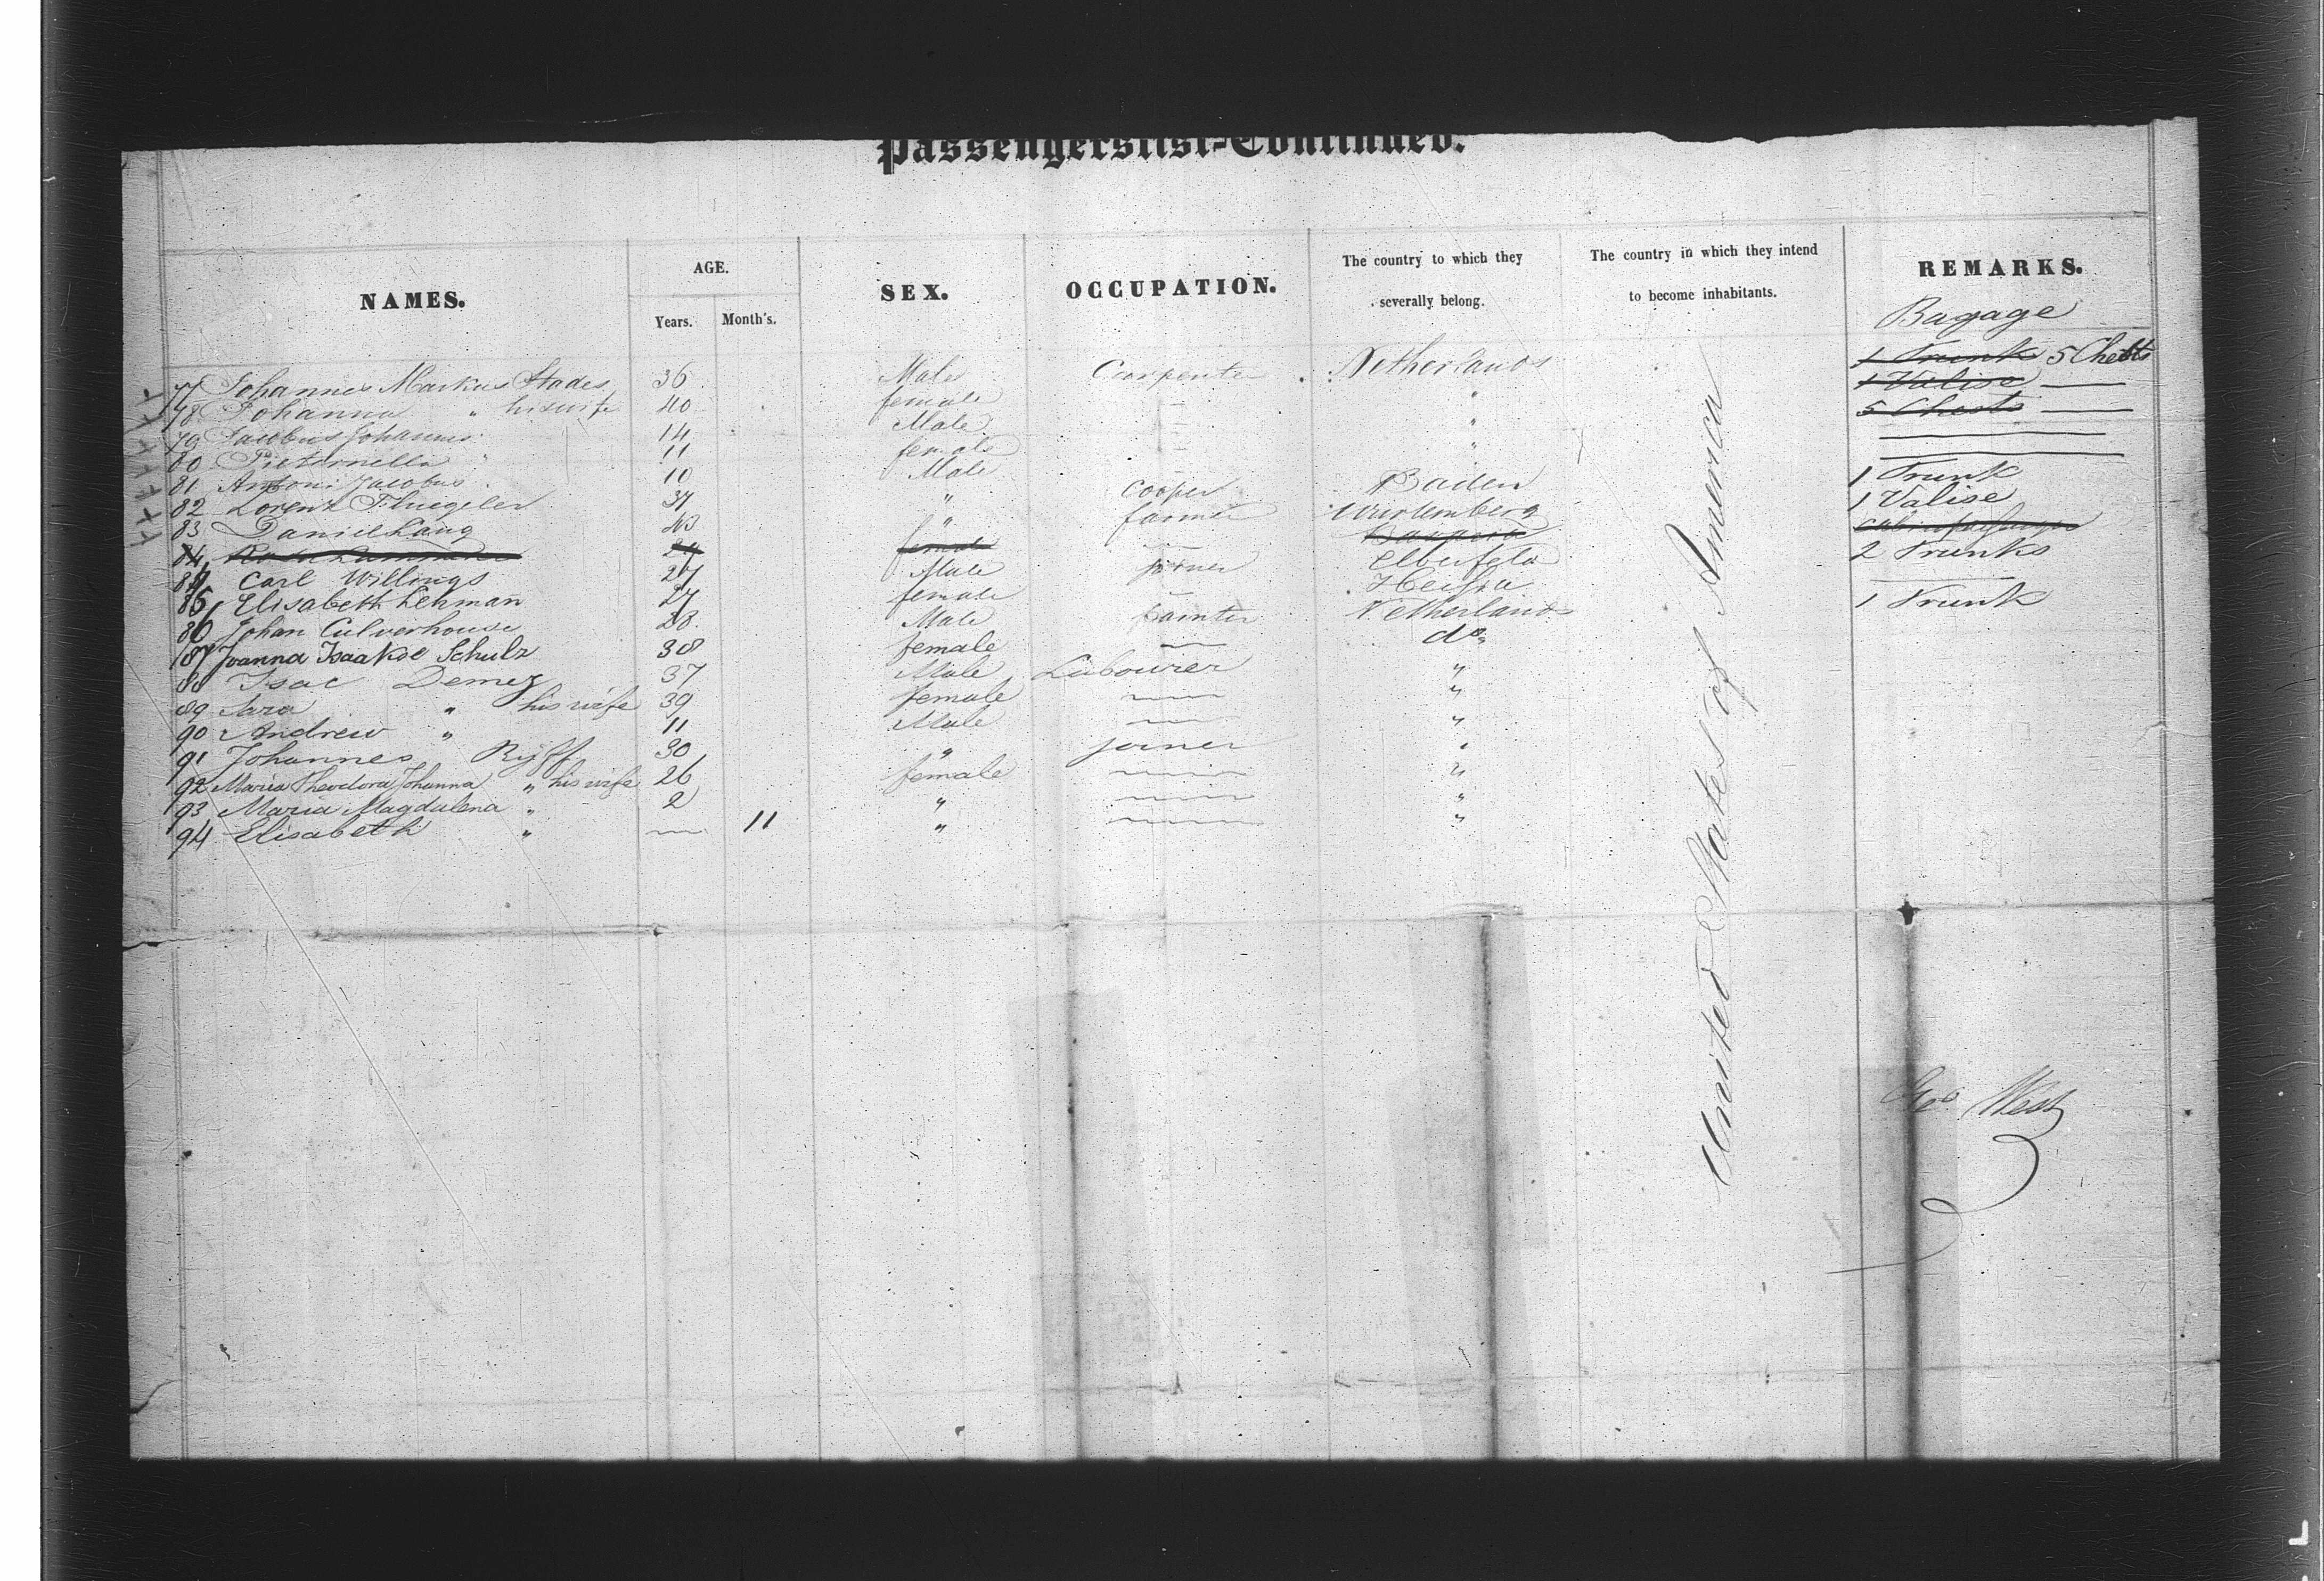 Passengerslist-Continued.
NAMES. AGE. SEX. OCCUPATION. The country to which they severally belong. The country in which they intend to become inhabitants. REMARKS.
Years. Month's.
Bagage
77 Johannes Markus Stades 36 Male Carpenter Netherlands 1 Trunk 5 Chests
78 Johanna " his wife 40 female " 1 Valise —
79 Jacobus Johannes 14 Male " 5 Chests —
80 Pieternella " 11 female "
81 Antoni Jacobus 10 Male
82 Lorenz Fluegeler 37 " Cooper Baden 1 Trunk
83 Daniel Lang " farmer Wurtemberg 1 Valise
84 female
Carl Willings 27 Male joiner Elberfeld 2 Trunks
85 Elisabeth Lehman 27 female — Hessia —
86 Johan Culverhouse 28 Male painter Netherlands 1 Trunk
87 Joanna Isaak de Schulz 30 female — do
88 Isac Demez 37 Male Labourer "
89 Sara " his wife 39 female — "
90 Andrew " 11 Male — "
91 Johannes Ryff 30 " joiner "
92 Maria Theodora Johanna " his wife 26 female — "
93 Maria Magdalena " 2 " — "
94 Elisabeth " — 11 " — "
United States of America
Geo West